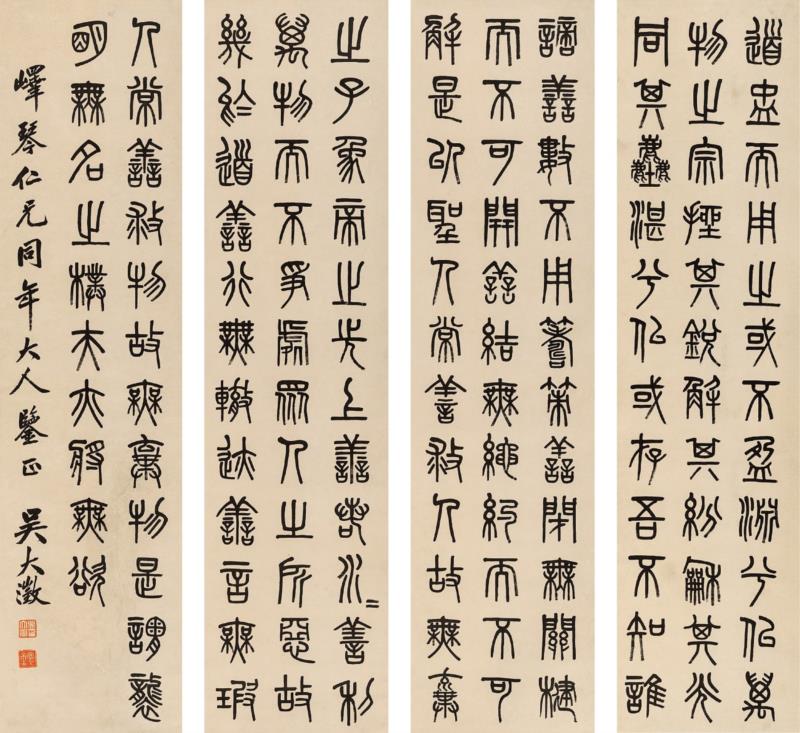 道盅而用之或不盈淵兮佀萬
物之宗挫其銳解其紛龢其光
同其塵湛兮佀或存吾不知誰
謫善數不用籌策善閉無關楗
而不可開善結無繩約而不可
解是以聖人常善救人故無棄
之子象帝之先上善若水=善利
萬物而不爭處眾人之所惡故
幾於道善行無轍迹善言無瑕
人常善救物故無棄物是謂襲
明無名之樸夫亦將無欲
嶧琴仁兄同年大人鑒正 吳大澂